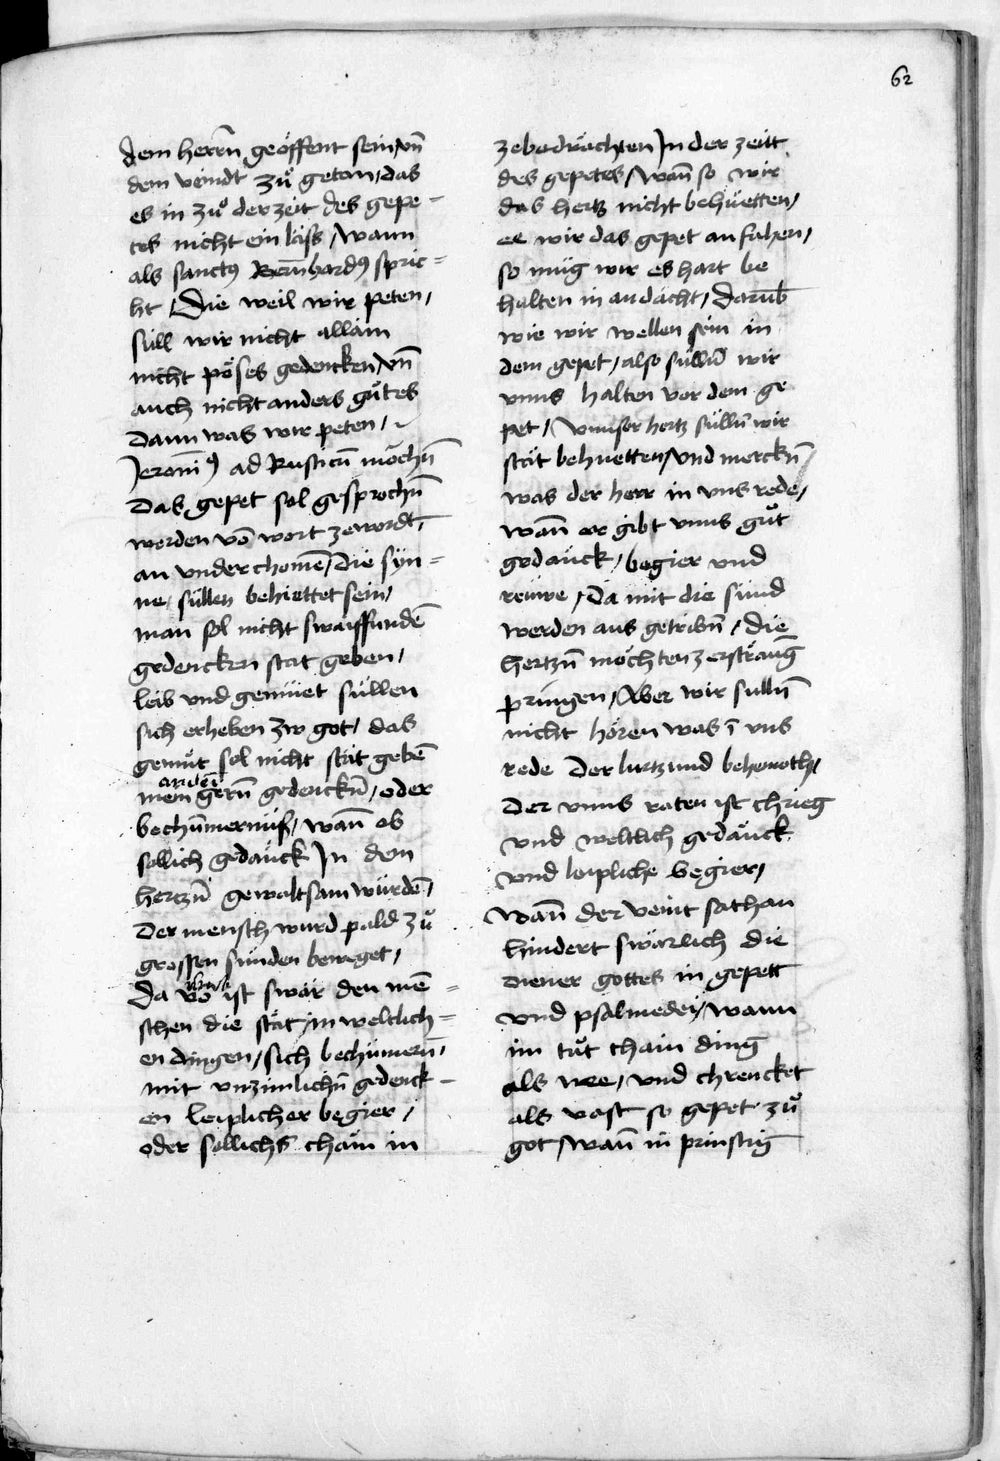 62
dem herrñ geöffent sein / vñ
dem veindt zů getan / das
es in zů der zeit des gepe-
tes nicht ein läss / wann
als sanctꝯ Bernhardꝯ spric=
ht / Die weil wir peten /
süll wir nicht allain
nicht pöses gedencken / vñ
auch nicht anders gůtes
Dann was wir peten /
Jeronimꝯ ad Rusticũ möchñ
Das gepet sol gesprochñ
werden võ wort ze wordt /
an vnderchomẽ / Die syn=
ne / süllen behiettet sein /
man sol nicht swaiffundẽ
gedencken stat geben /
leib vnd gemüet süllen
sich erheben zw got / das
gemüt sol nicht stät gebẽ
andñ
gern gedenckñ / oder
bechũmernüß / wañ ob
sollich gedänck In dem
hertzñ gewaltsam würdẽ /
Der mensch wurd pald zů
grossen sünden beweget /
Da võ ist swär den mẽ=
schen die stät / in weltlich=
en dingen / sich bechümerñ /
mit vnzimlichñ gedenck-
en leiplicher begier /
oder sollichs chain in
ze bedrächten In der zeitt
des gepetes / Wañ so wir
das hertz nicht behüetten /
ee wir das gepet an fahen /
so müg wir es hart be
halten in andächt / darũb
wie wir wellen sein in
dem gepet / also süllñ wir
vnns halten vor dem ge
pet / Vnnser hertz süllñ wir
stät behuetten / vnd merckñ /
was der herr in vns rede /
wañ er gibt vnns gůt
gedänck / begier vnd
rewe / Da mit die sünd
werden aus getribñ / Die
hertzñ möchten zersträung
pringen / Aber wir sullñ
nicht hören was ĩ vns
rede Der lurtz und behemoth /
Der vnns raten ist chrieg
vnd weltlich gedänck
vnd leipliche begier /
Wañ der veint sathan
hindert swärlich die
diener gottes in gepett
vnd psalmedei / wann
im tůt chain ding
als wee / vnd chrencket
als vast so gepet zů
got / wañ in prinstig